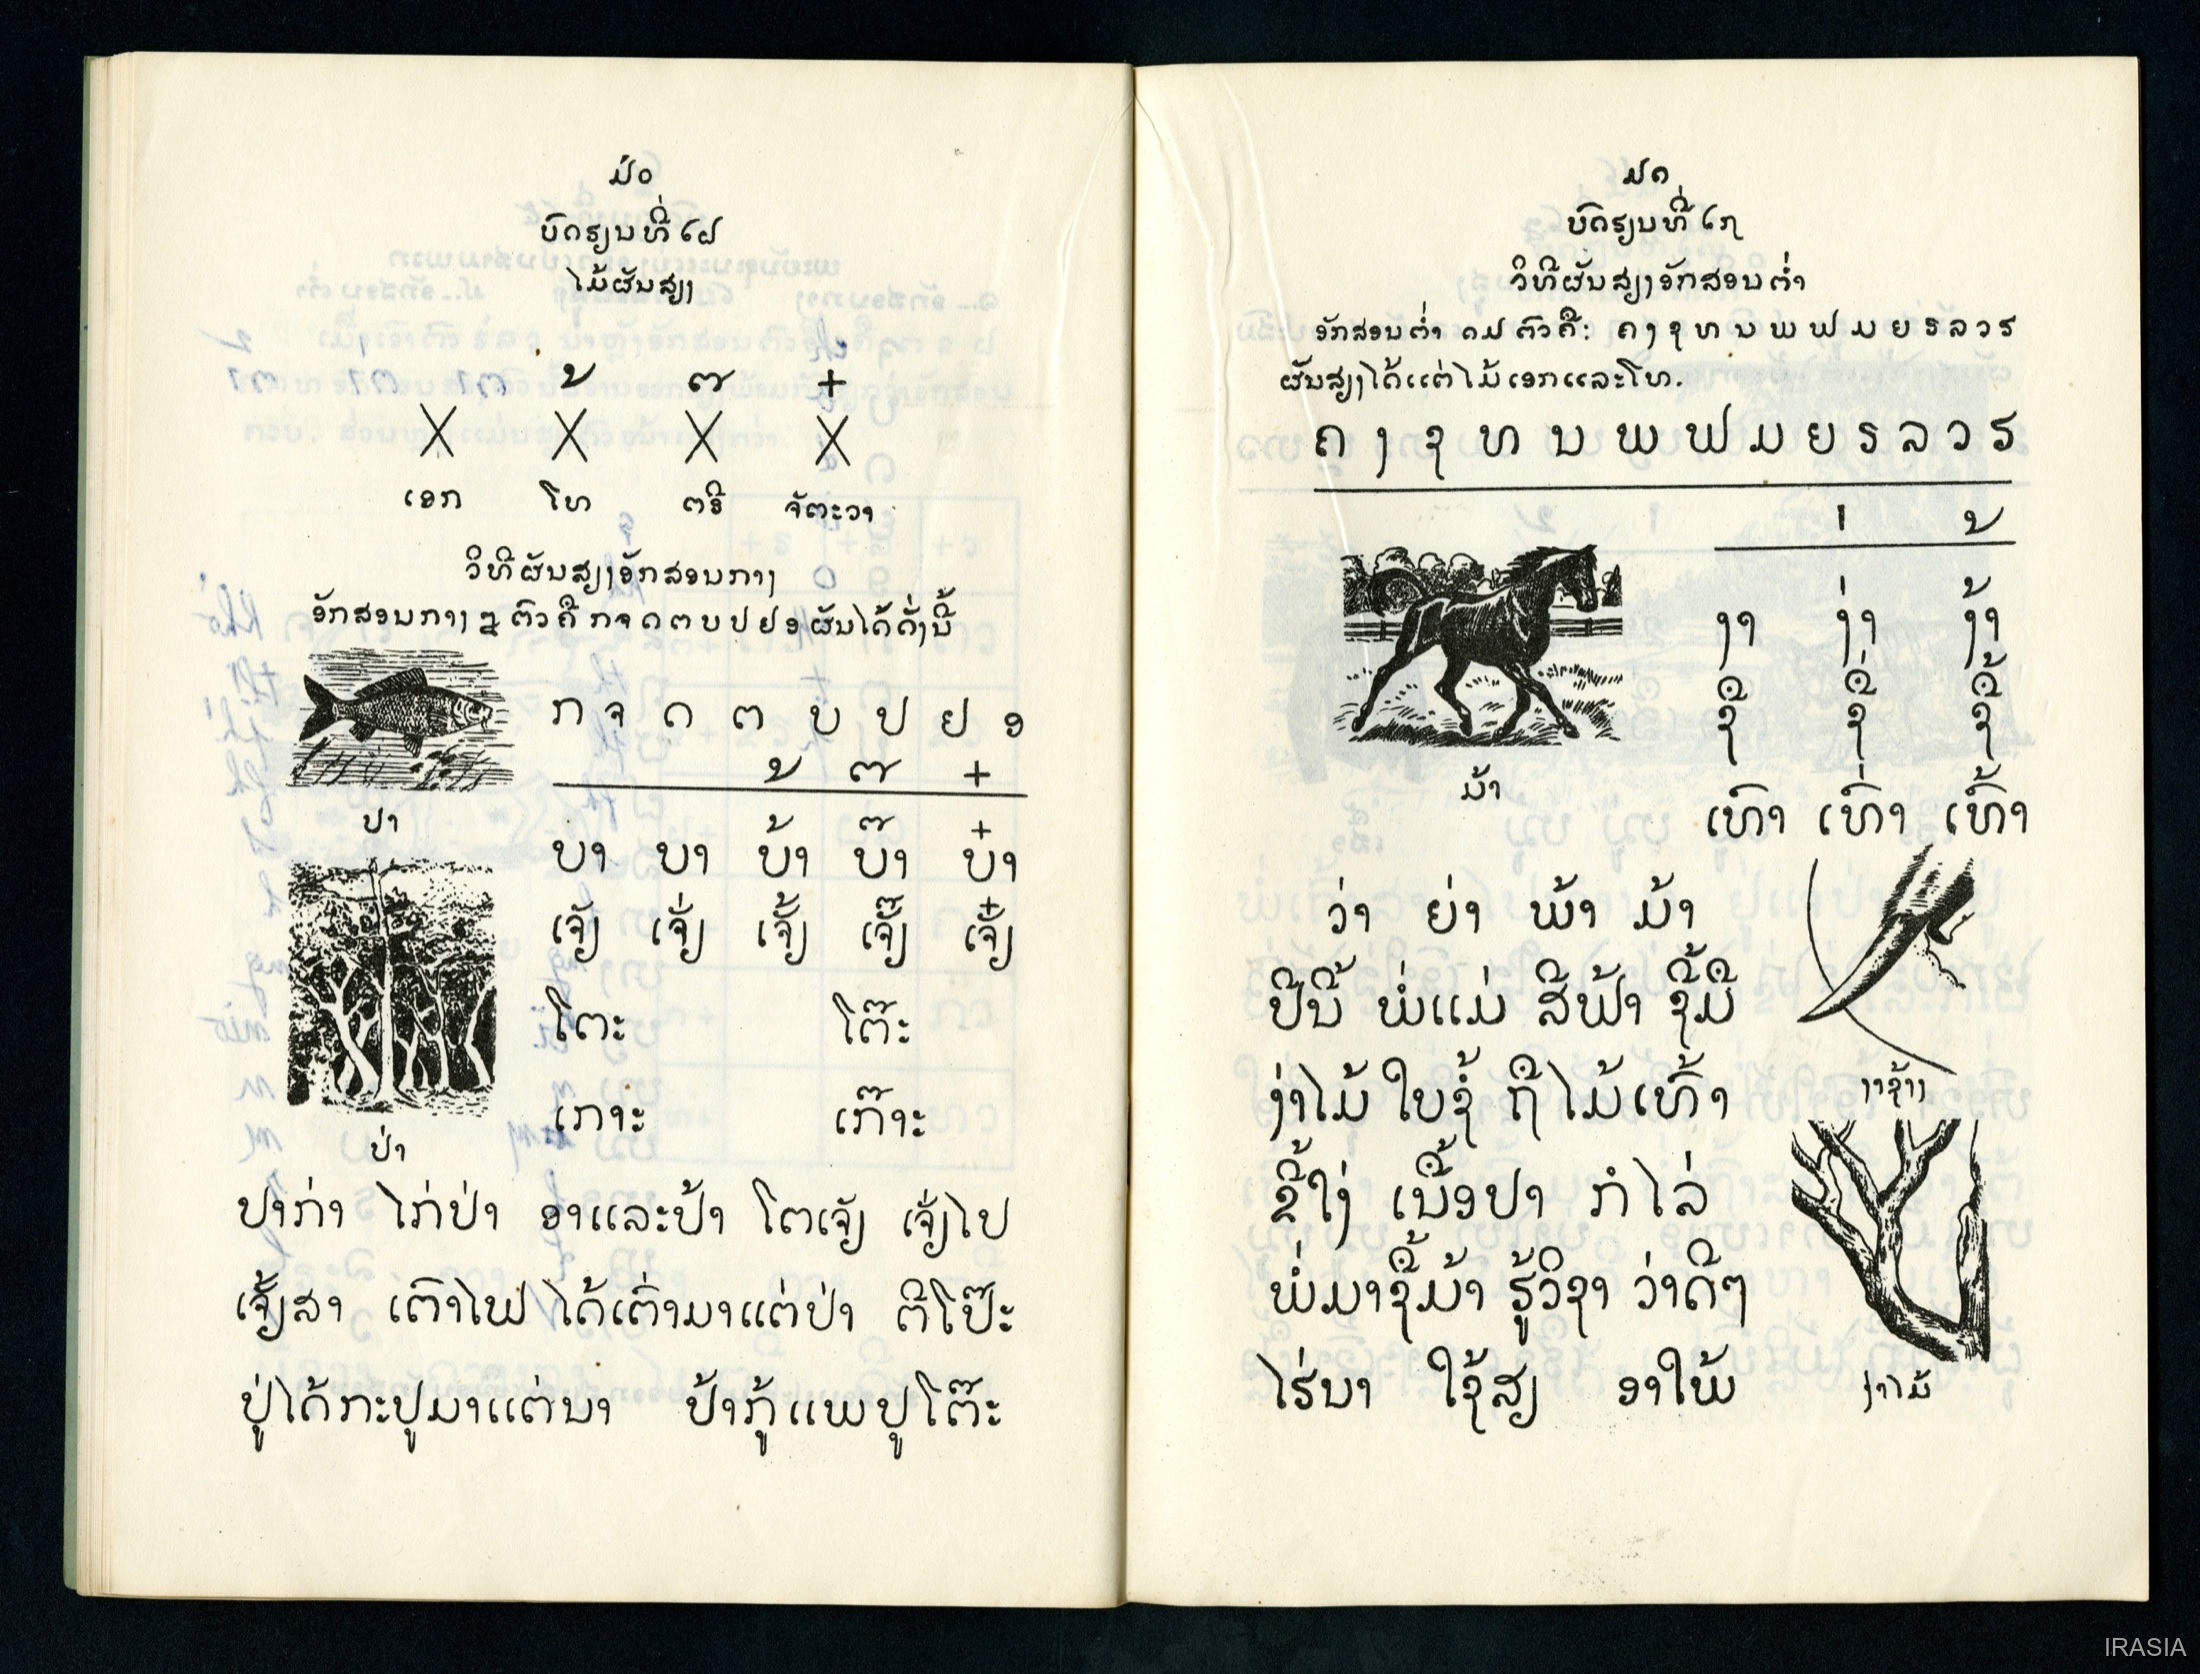 ໒໐
ບົດຮຽນທີ່ ໑໘
ໄມ້ຜັນສຽງ
X X້ X໊ X໋
ເອກ ໂທ ຕຣີ ຈັຕະວາ
ວິທີຜັນສຽງອັກສອນກາງ
ອັກສອນກາງ ໘ ຕົວຄື ກ ຈ ດ ຕ ບ ປ ຢ ອ ຜັນໄດ້ດັ່ງນີ້
ກ ຈ ດ ຕ ບ ປ ຢ ອ
້ ໊ ໋
ປາ
ບາ ບາ ບ້າ ບ໊າ ບ໋າ
ເຈັຽ ເຈັ່ຽ ເຈັ້ຽ ເຈັ໊ຽ ເຈັ໋ຽ
ໂຕະ ໂຕ໊ະ
ເກາະ ເກ໊າະ
ປ່າ
ປາກ່າ ໄກ່ປ່າ ອາແລະປ້າ ໂຕເຈັຽ ເຈັ່ຽໄປ
ເຈັ້ຽສາ ເຕົາໄຟ ໄດ້ເຕົ່າມາແຕ່ປ່າ ຕີໂປ໊ະ
ປູ່ໄດ້ກະປູມາແຕ່ນາ ປ້າກູ້ແພປູໂຕ໊ະ
໒໑
ບົດຮຽນທີ່ ໑໙
ວິທີຜັນສຽງອັກສອນຕ່ຳ
ອັກສອນຕ່ຳ ໑໒ ຕົວຄື: ຄ ງ ຊ ທ ນ ພ ຟ ມ ຍ ຣ ລ ວ ຮ
ຜັນສຽງໄດ້ແຕ່ໄມ້ເອກແລະໂທ.
ຄ ງ ຊ ທ ນ ພ ຟ ມ ຍ ຣ ລ ວ ຮ
່ ້
ງາ ງ່າ ງ້າ
ຊື ຊື່ ຊື້
ມ້າ
ເທົາ ເທົ່າ ເທົ້າ
ວ່າ ຍ່າ ພ້າ ມ້າ
ປີນີ້ ພໍ່ແມ່ ສີຟ້າ ຊື້ມື
ງ່າໄມ້ ໃບຊໍ້ ຖືໄມ້ເທົ້າ
ງາຊ້າງ
ຂີ້ໃງ່ ເນື້ອປາ ກໍໄລ່
ພໍ່ມາຊື້ມ້າ ຮູ້ວິຊາ ວ່າດີໆ
ໄຮ່ນາ ໃຊ້ສຽ ອາໃພ້
ງ່າໄມ້
IRASIA